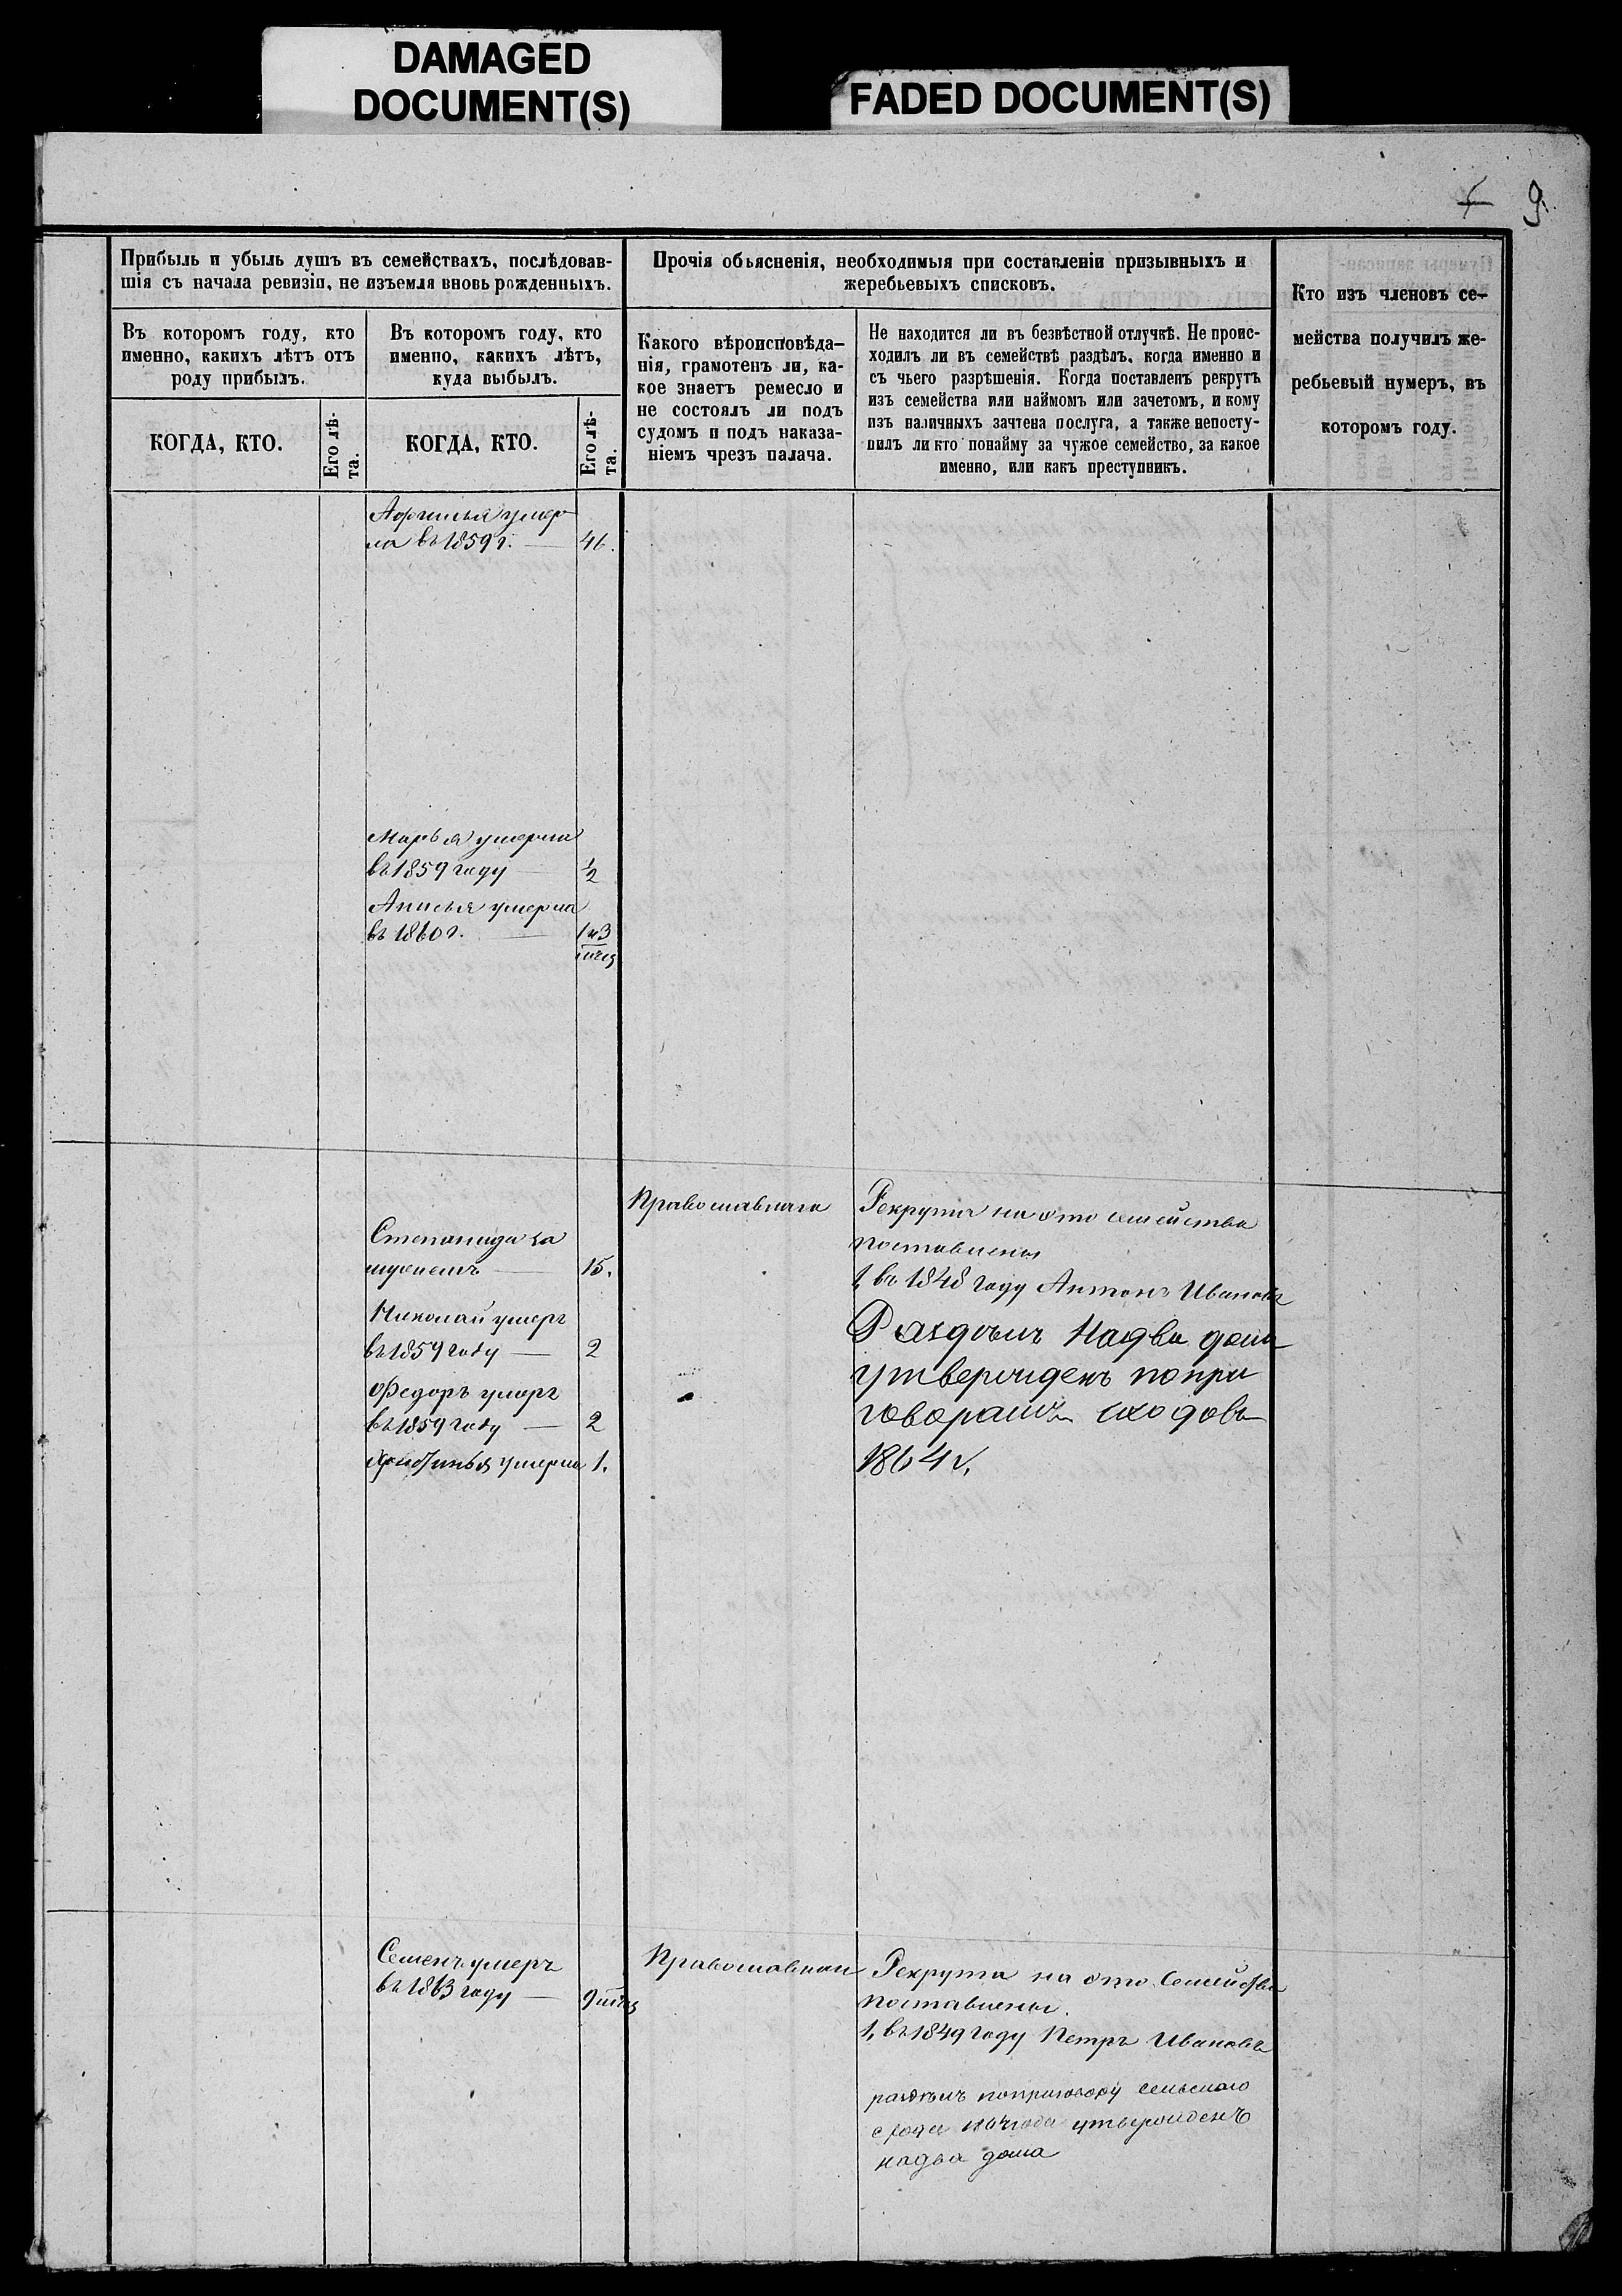 DAMAGED
DOCUMENT(S)
FADED DOCUMENT(S)
9.
Прибыль и убыль душъ въ семействахъ, послѣдовав-
шія съ начала ревизіи, не изъемля вновь рожденныхъ.
Въ котормъ году, кто
именно, какихъ лѣтъ отъ
роду прибылъ.
КОГДА, КТО.
Его лѣ-
та.
Въ которомъ году, кто
именно, какихъ лѣтъ,
куда выбылъ.
КОГДА, КТО.
Его лѣ-
та.
Прочія обьясненія, необходимыя при составленіи призывныхъ и
жеребьевыхъ списковъ.
Какого вѣроисповѣда-
нія, грамотенъ ли, ка-
кое знаетъ ремесло и
не состоялъ ли подъ
судомъ и подъ наказа-
ніемъ чрезъ палача.
Не находится ли въ безвѣстной отлучкѣ. Не проис-
ходилъ ли въ семействѣ раздѣлъ, когда именно и
съ чьего разрѣшенія. Когда поставленъ рекрутъ
изъ семейства или наймомъ или зачетомъ, и кому
изъ наличныхъ зачтена послуга, а также непосту-
пилъ ли кто понайму за чужое семейство, за какое
именно, или какъ преступникъ.
Кто изъ членовъ се-
мейства получилъ же-
ребьевый нумеръ, въ
которомъ году.
умер
ла въ 1859 г. 46.
Марья умерла
въ 1859 году ½
Анисья умерла
въ 1860 г. 1 и 3
мѣся
Православнаго
Степанида за
мужемъ 15.
Николай умеръ
въ 1859 году 2
Федоръ умеръ
въ 1859 году 2
Христинья умерла 1.
Рекрута на это семейства
поставлены
1, въ 1848 году Антонъ Ивановъ
Раздѣлъ На два дома
утвержденъ по при
говорамъ сходовъ
1864 г.
Семенъ умеръ
въ 1863 году 9 мѣся
Православнаго
Рекрута на это Семейства
поставлены.
1, въ 1849 году Петръ Ивановъ
раздѣлъ поприговору сельскаго
схода 1864 года утвержденъ
на два дома